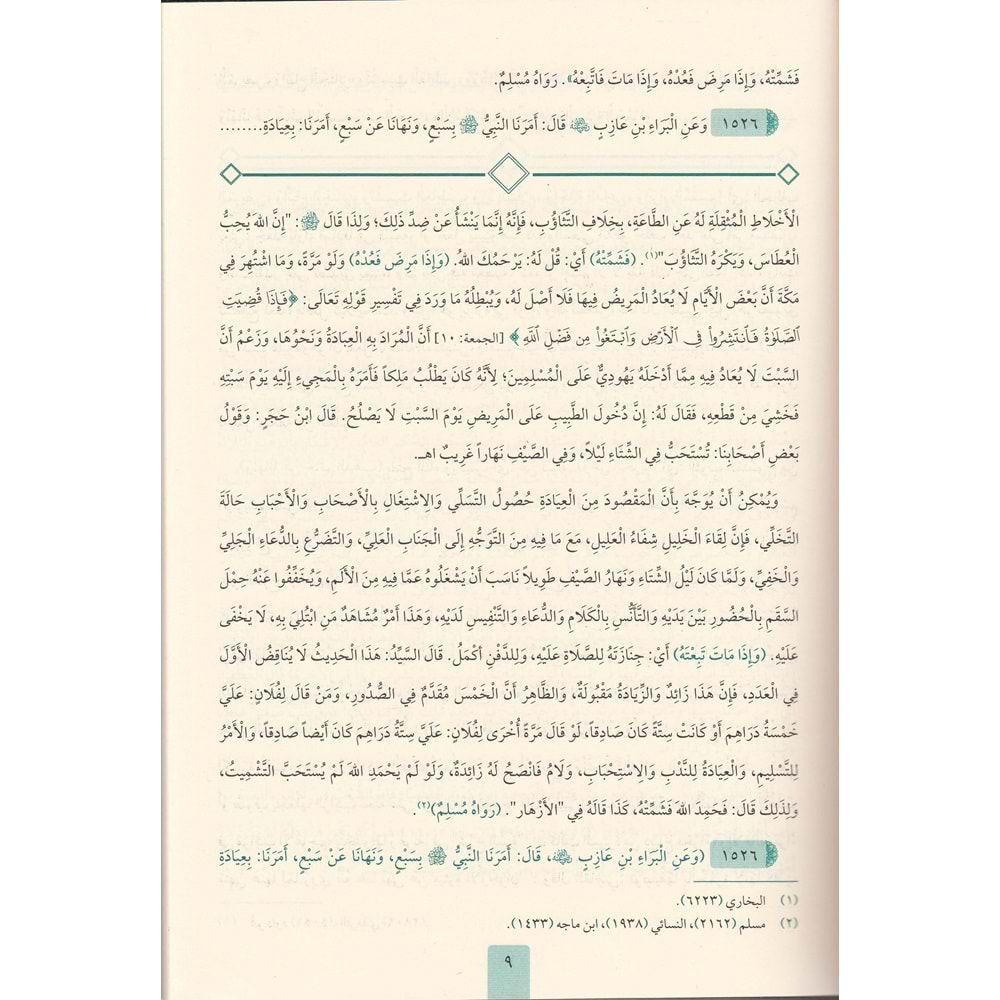 فَشَمِّتْهُ، وَإِذَا مَرِضَ فَعُدْهُ، وَإِذَا مَاتَ فَاتَّبِعْهُ». رَوَاهُ مُسْلِمٌ.
١٥٢٦ وَعَنِ الْبَرَاءِ بْنِ عَازِبٍ ﷺ قَالَ: أَمَرَنَا النَّبِيُّ ﷺ بِسَبْعٍ، وَنَهَانَا عَنْ سَبْعٍ، أَمَرَنَا: بِعِيَادَةِ........
الْأَخْلَاطِ الْمُثْقِلَةِ لَهُ عَنِ الطَّاعَةِ، بِخِلَافِ التَّثَاؤُبِ، فَإِنَّهُ إِنَّمَا يَنْشَأُ عَنْ ضِدِّ ذَلِكَ؛ وَلِذَا قَالَ ﷺ: "إِنَّ اللهَ يُحِبُّ
الْعُطَاسَ، وَيَكْرَهُ التَّثَاؤُبَ"(١). (فَشَمِّتْهُ) أَيْ: قُلْ لَهُ: يَرْحَمُكَ اللهُ. (وَإِذَا مَرِضَ فَعُدْهُ) وَلَوْ مَرَّةً، وَمَا اشْتُهِرَ فِي
مَكَّةَ أَنَّ بَعْضَ الْأَيَّامِ لَا يُعَادُ الْمَرِيضُ فِيهَا فَلَا أَصْلَ لَهُ، وَيُبْطِلُهُ مَا وَرَدَ فِي تَفْسِيرِ قَوْلِهِ تَعَالَى: ﴿فَإِذَا قُضِيَتِ
ٱلصَّلَوٰةُ فَٱنتَشِرُوا۟ فِى ٱلْأَرْضِ وَٱبْتَغُوا۟ مِن فَضْلِ ٱللَّهِ﴾ [الجمعة: ١٠] أَنَّ الْمُرَادَ بِهِ الْعِيَادَةُ وَنَحْوُهَا، وَزَعْمُ أَنَّ
السَّبْتَ لَا يُعَادُ فِيهِ مِمَّا أَدْخَلَهُ يَهُودِيٌّ عَلَى الْمُسْلِمِينَ؛ لِأَنَّهُ كَانَ يَطْلُبُ مَلِكاً فَأَمَرَهُ بِالْمَجِيءِ إِلَيْهِ يَوْمَ سَبْتِهِ
فَخَشِيَ مِنْ قَطْعِهِ، فَقَالَ لَهُ: إِنَّ دُخُولَ الطَّبِيبِ عَلَى الْمَرِيضِ يَوْمَ السَّبْتِ لَا يَصْلُحُ. قَالَ ابْنُ حَجَرٍ: وَقَوْلُ
بَعْضِ أَصْحَابِنَا: تُسْتَحَبُّ فِي الشِّتَاءِ لَيْلاً، وَفِي الصَّيْفِ نَهَاراً غَرِيبٌ اهـ.
وَيُمْكِنُ أَنْ يُوَجَّهَ بِأَنَّ الْمَقْصُودَ مِنَ الْعِيَادَةِ حُصُولُ التَّسَلِّي وَالِاشْتِغَالِ بِالْأَصْحَابِ وَالْأَحْبَابِ حَالَةَ
التَّخَلِّي، فَإِنَّ لِقَاءَ الْخَلِيلِ شِفَاءُ الْعَلِيلِ، مَعَ مَا فِيهِ مِنَ التَّوَجُّهِ إِلَى الْجَنَابِ الْعَلِيِّ، وَالتَّضَرُّعِ بِالدُّعَاءِ الْجَلِيِّ
وَالْخَفِيِّ، وَلَمَّا كَانَ لَيْلُ الشِّتَاءِ وَنَهَارُ الصَّيْفِ طَوِيلاً نَاسَبَ أَنْ يَشْغَلُوهُ عَمَّا فِيهِ مِنَ الْأَلَمِ، وَيُخَفِّفُوا عَنْهُ حِمْلَ
السَّقَمِ بِالْحُضُورِ بَيْنَ يَدَيْهِ وَالتَّأَنُّسِ بِالْكَلَامِ وَالدُّعَاءِ وَالتَّنْفِيسِ لَدَيْهِ، وَهَذَا أَمْرٌ مُشَاهَدٌ مَنِ ابْتُلِيَ بِهِ، لَا يَخْفَى
عَلَيْهِ. (وَإِذَا مَاتَ تَبِعْتَهُ) أَيْ: جِنَازَتَهُ لِلصَّلَاةِ عَلَيْهِ، وَلِلدَّفْنِ أَكْمَلُ. قَالَ السَّيِّدُ: هَذَا الْحَدِيثُ لَا يُنَاقِضُ الْأَوَّلَ
فِي الْعَدَدِ، فَإِنَّ هَذَا زَائِدٌ وَالزِّيَادَةُ مَقْبُولَةٌ، وَالظَّاهِرُ أَنَّ الْخَمْسَ مُقَدَّمٌ فِي الصُّدُورِ، وَمَنْ قَالَ لِفُلَانٍ: عَلَيَّ
خَمْسَةُ دَرَاهِمَ أَوْ كَانَتْ سِتَّةً كَانَ صَادِقاً، لَوْ قَالَ مَرَّةً أُخْرَى لِفُلَانٍ: عَلَيَّ سِتَّةُ دَرَاهِمَ كَانَ أَيْضاً صَادِقاً، وَالْأَمْرُ
لِلتَّسْلِيمِ، وَالْعِيَادَةُ لِلنَّدْبِ وَالِاسْتِحْبَابِ، وَلَامُ فَانْصَحْ لَهُ زَائِدَةٌ، وَلَوْ لَمْ يَحْمَدِ اللهَ لَمْ يُسْتَحَبَّ التَّشْمِيتُ،
وَلِذَلِكَ قَالَ: فَحَمِدَ اللهَ فَشَمِّتْهُ، كَذَا قَالَهُ فِي "الْأَزْهَارِ". (رَوَاهُ مُسْلِمٌ)(٢).
١٥٢٦ (وَعَنِ الْبَرَاءِ بْنِ عَازِبٍ ﷺ، قَالَ: أَمَرَنَا النَّبِيُّ ﷺ بِسَبْعٍ، وَنَهَانَا عَنْ سَبْعٍ، أَمَرَنَا: بِعِيَادَةِ
(١) البخاري (٦٢٢٣).
(٢) مسلم (٢١٦٢)، النسائي (١٩٣٨)، ابن ماجه (١٤٣٣).
٩